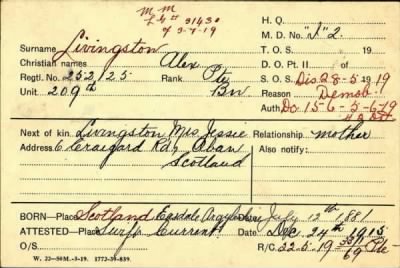 M.M.
L.G. 31430
of 3-7-19
H. Q.
Surname Livingston
M. D. No. "I" 2.
Christian names Alex
T. O. S. 19
D. O. Pt. II of 19
Regtl. No. 252125 Rank Pte
S. O. S. Dis 28-5-1919
Unit 209th Bn
Reason Demob.
Auth. Do 15-6-5-6-19
Next of kin Livingston Mrs Jessie Relationship mother
Address 6 Craigard Rd, Oban Also notify:
Scotland
BORN—Place Scotland Easdale Argyllshire July 12th 1881
ATTESTED—Place Swift Current Date Dec 24th 1915
O/S R/C 22-5-19 Pte
W. 22—50M.-3-19. 1772-39-839.